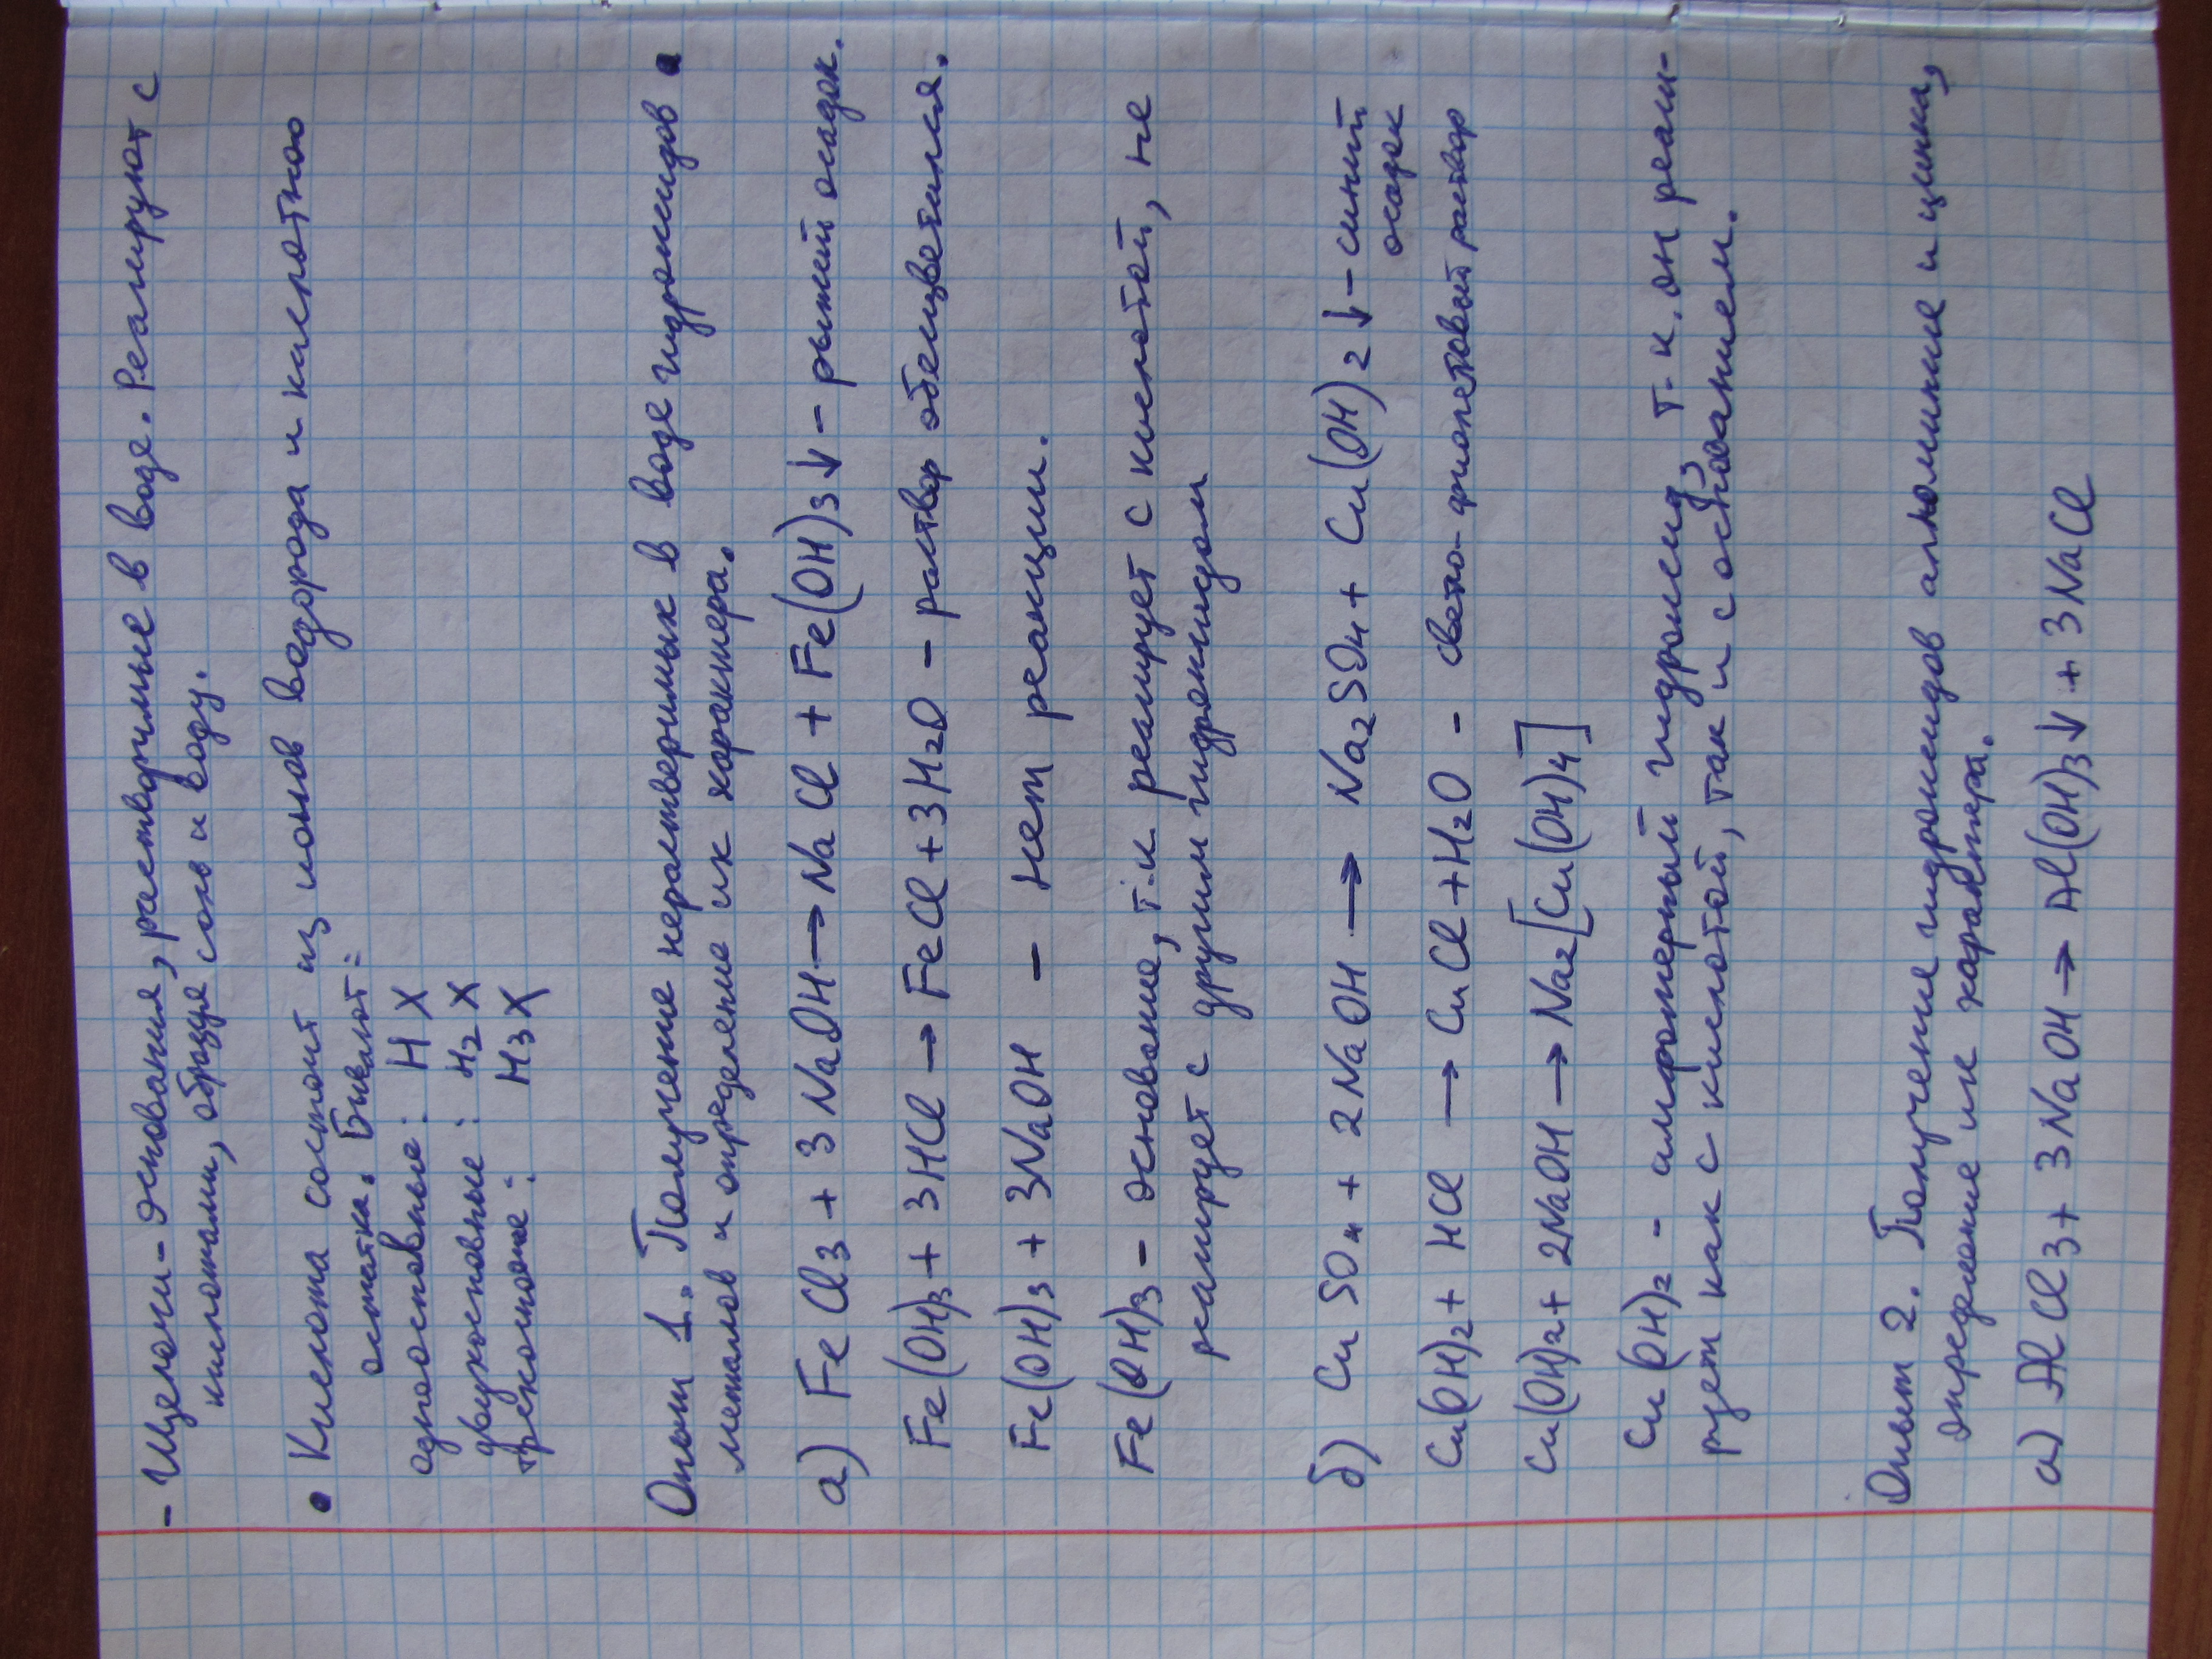 - Щелочи - основания, растворимые в воде. Реагируют с
кислотами, образуя соль и воду.
• Кислота состоит из ионов водорода и кислотного
остатка. Бывают:
одноосновные: HX
двухосновные: H2X
трехосновные: H3X
Опыт 1. Получение нерастворимых в воде гидроксидов
металов и определение их характера.
а) FeCl3 + 3NaOH → NaCl + Fe(OH)3↓ - рыжий осадок.
Fe(OH)3 + 3HCl → FeCl + 3H2O - раствор обесцветился.
Fe(OH)3 + 3NaOH - нет реакции.
Fe(OH)3 - основание, т.к. реагирует с кислотой, не
реагирует с другим гидроксидом
б) CuSO4 + 2NaOH → Na2SO4 + Cu(OH)2↓ - синий
осадок
Cu(OH)2 + HCl → CuCl + H2O - светло-фиолетовый раствор
Cu(OH)2 + 2NaOH → Na2[Cu(OH)4]
Cu(OH)2 - амфотерный гидроксид, т.к. он реаги-
рует как с кислотой, так и с основанием.
Опыт 2. Получение гидроксидов алюминие и цинка,
определение их характера.
а) AlCl3 + 3NaOH → Al(OH)3↓ + 3NaCl